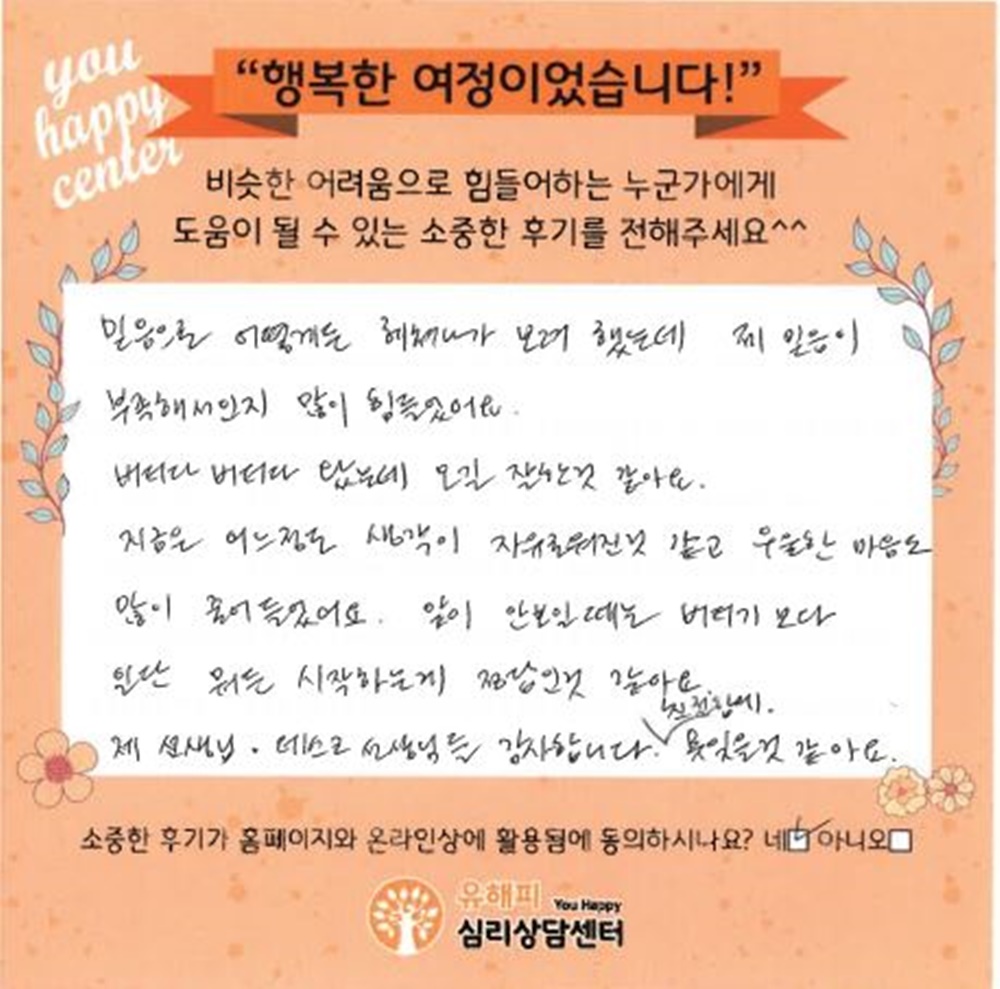 you
happy
center
“행복한 여정이었습니다!”
비슷한 어려움으로 힘들어하는 누군가에게
도움이 될 수 있는 소중한 후기를 전해주세요^^
믿음으로 어떻게든 헤쳐나가 보려 했는데 제 믿음이
부족해서인지 많이 힘들었어요.
버티다 버티다 왔는데 오길 잘한것 같아요.
지금은 어느정도 생각이 자유로워진것 같고 우울한 마음도
많이 줄어들었어요. 앞이 안보일때는 버티기 보다
일단 뭐든 시작하는게 정답인것 같아요
친절함에.
제 선생님. 데스크 선생님들 감사합니다. 못잊을것 같아요.
소중한 후기가 홈페이지와 온라인상에 활용됨에 동의하시나요? 네☑ 아니오☐
유해피 You Happy
심리상담센터